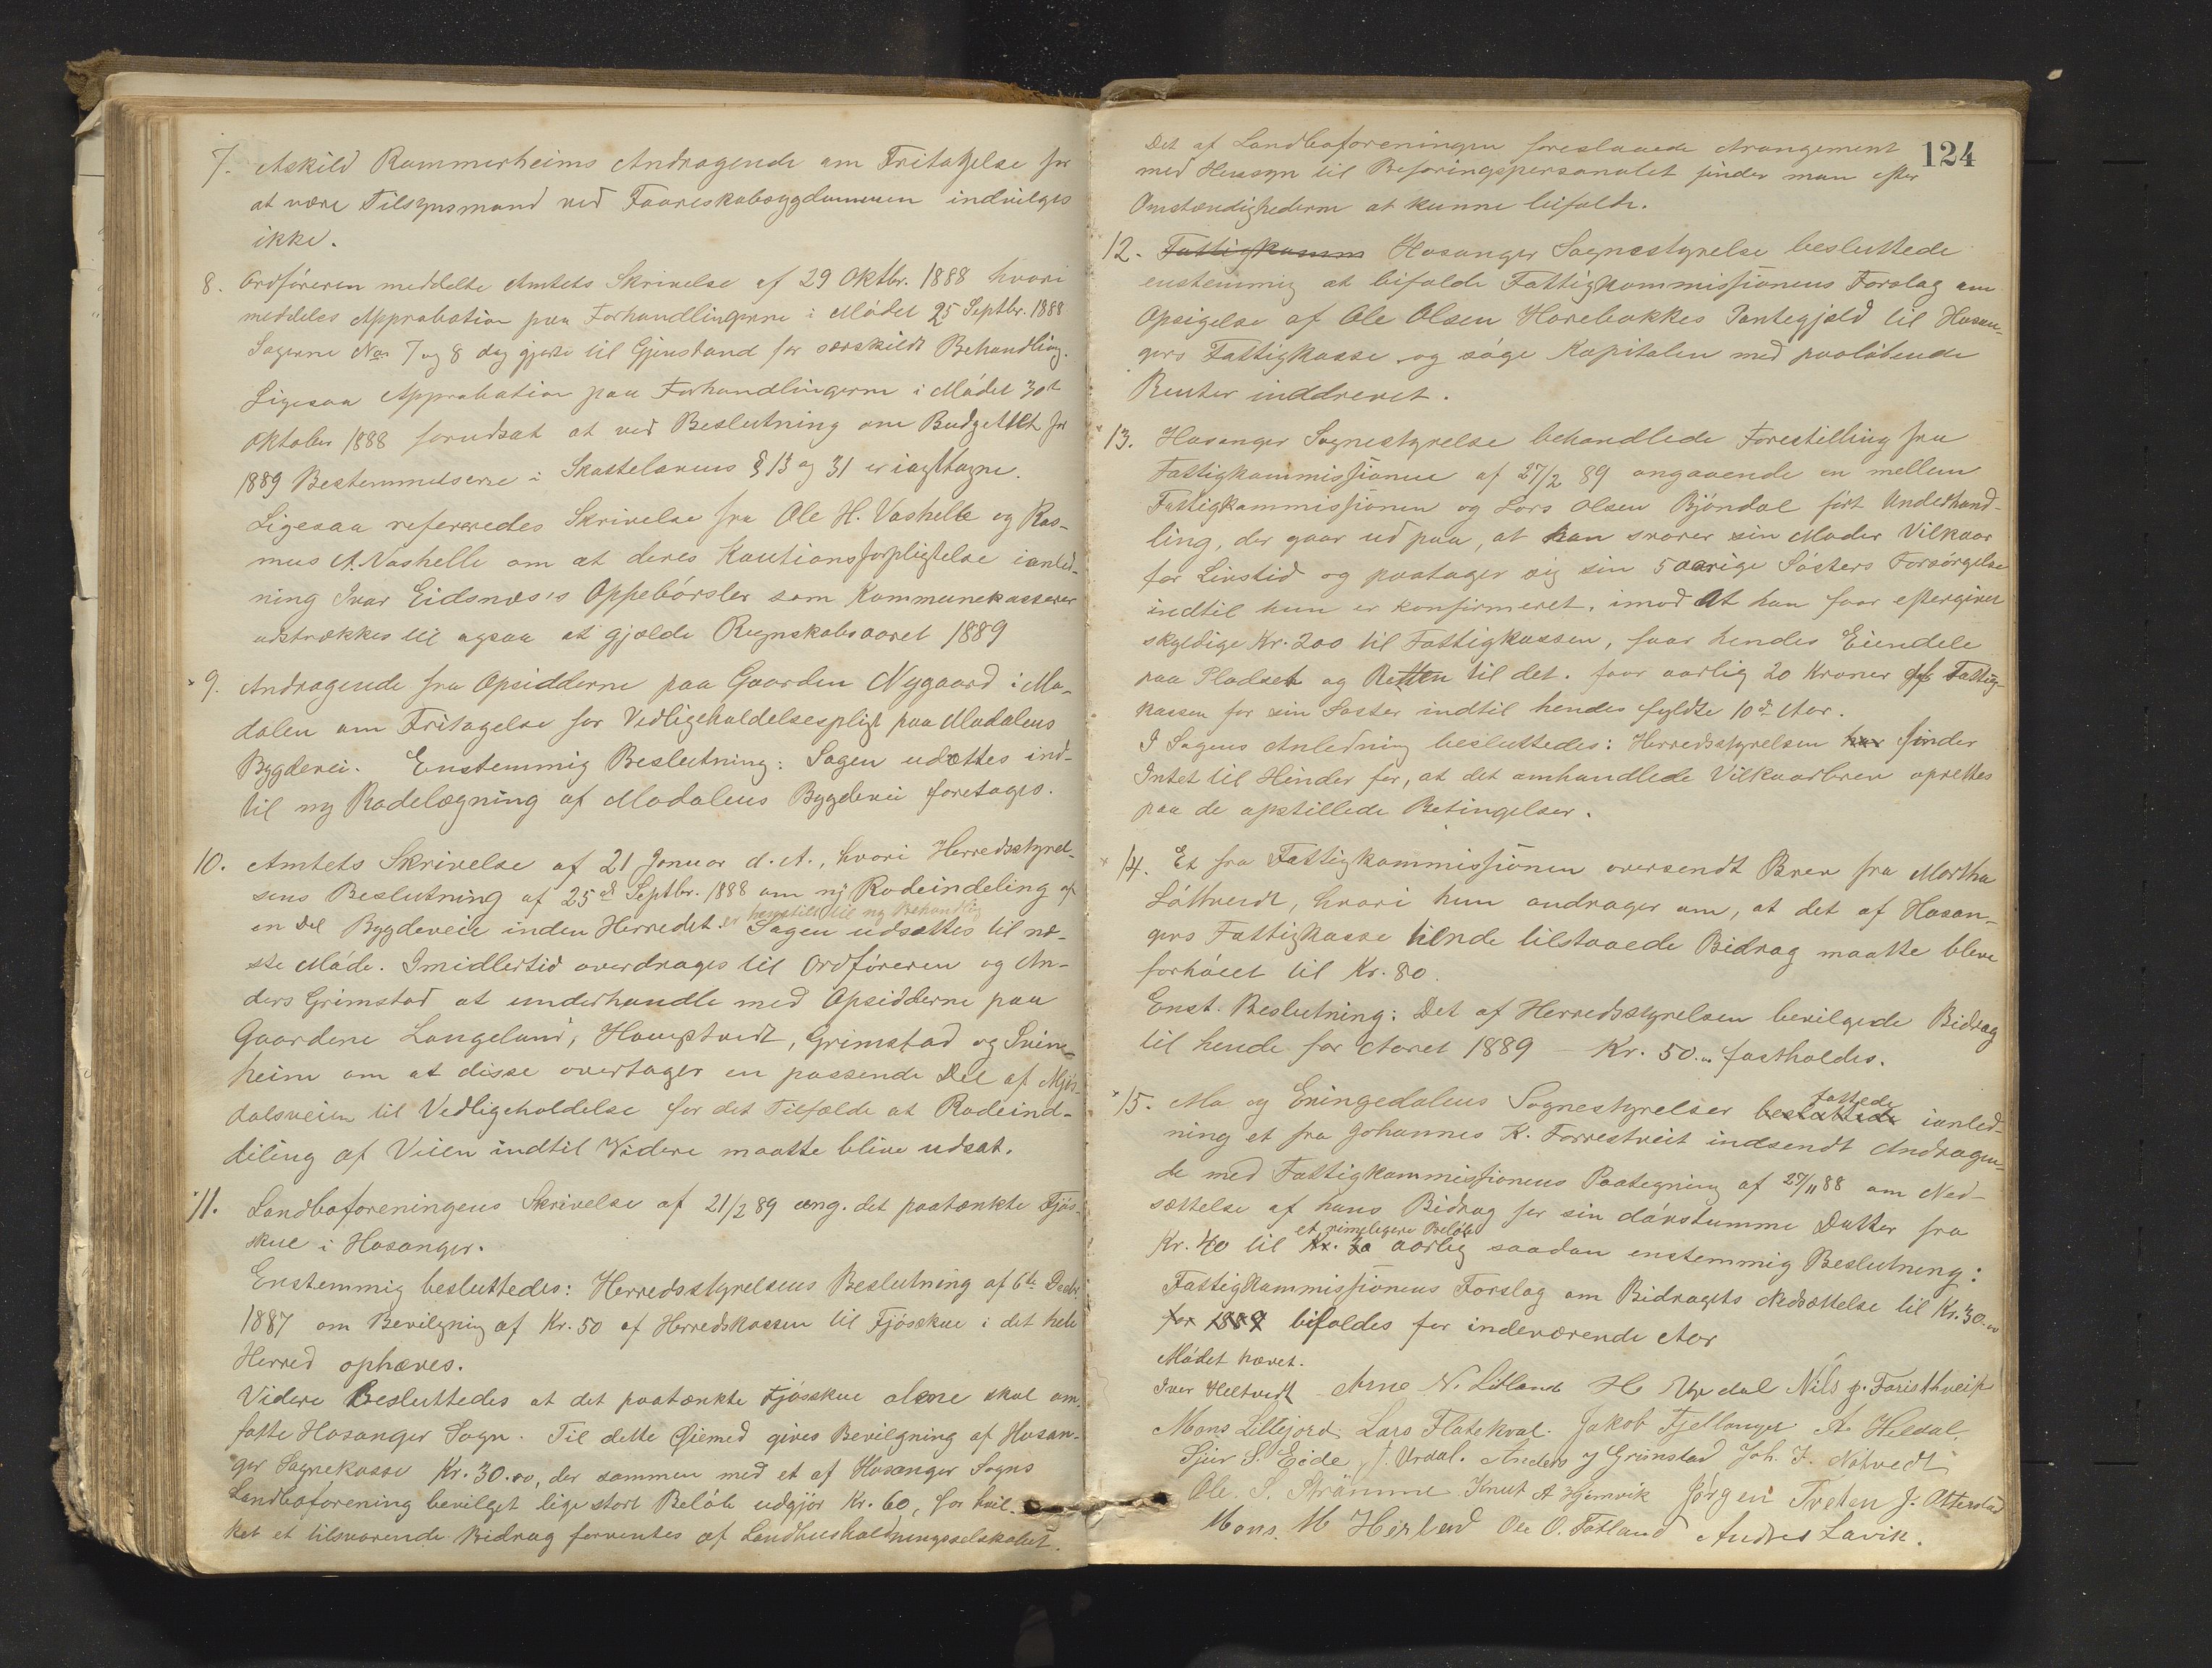 7. Askild Rammerheims Andragende om Fritagelse for
at være Tilsynsmand ved Faareskabsygdommen indvilges
ikke.
8. Ordföreren meddelte Amtets Skrivelse af 29 Oktbr. 1888 hvori
meddeles Approbation paa Forhandlingerne i Mödet 25 Septbr. 1888
Sagerne No 7 og 8 dog gjøres til Gjenstand for særskildt Behandling.
Ligesaa Approbation paa Forhandlingerne i Mödet 30t
Oktober 1888 forudsat at ved Beslutning om Budgettet for
1889 Bestemmelserne i Skattelovens § 13 og 31 er iagttagne.
Ligesaa refereredes Skrivelse fra Ole H. Vashelle og Ras-
mus A. Vashelle om at deres Kautionsforpligtelse ianled-
ning Ivar Eidsnæs's Oppebörsler som Kommunekasserer
udstrækkes til ogsaa at gjælde Regnskabsaaret 1889
9. Andragende fra Opsidderne paa Gaarden Nygaard i Mo-
dalen om Fritagelse for Vedligeholdelsespligt paa Modalens
Bygdevei. Enstemmig Beslutning: Sagen udsættes ind-
til ny Rodelægning af Modalens Bygdevei foretages.
10. Amtets Skrivelse af 21 Januar d. A., hvori Herredsstyrel-
sens Beslutning af 25de Septbr. 1888 om ny Rodeindeling af
er henstilt til ny Behandlig
en Del Bygdeveie inden Herredet. Sagen udsættes til næ-
ste Möde. Imidlertid overdrages til Ordföreren og An-
ders Grimstad at underhandle med Opsidderne paa
Gaardene Langeland, Hougstvedt, Grimstad og Svine-
heim om at disse overtager en passende Del af Mjös-
dalsveien til Vedligeholdelse for det Tilfælde at Rodeind-
deling af Veien indtil Videre maatte blive udsat.
11. Landboforeningens Skrivelse af 21/2 89 ang. det paatænkte Fjös-
skue i Hosanger.
Enstemmig besluttedes: Herredsstyrelsens Beslutning af 6te Decbr
1887 om Bevilgning af Kr. 50 af Herredskassen til Fjösskue i det hele
Herred ophæves.
Videre Besluttedes at det paatænkte Fjösskue alene skal om-
fatte Hosanger Sogn. Til dette Øiemed gives Bevilgning af Hosan-
ger Sognekasse Kr. 30.00, der sammen med et af Hosanger Sogns
Landboforening bevilget lige stort Belöb udgjör Kr. 60, for hvil-
ket et tilsvarende Bidrag forventes af Landhusholdningsselskabet.
124
Det af Landboforeningen foreslaaede Arangement
med Hensyn til Beforingspersonalet finder man efter
Omstændighederne at kunne bifalde.
12. Fattigkomm Hosanger Sognestyrelse besluttede
enstemmig at bifalde Fattigkommissionens Forslag om
Opsigelse af Ole Olsen Horebakkes Pantegjæld til Hosan-
gers Fattigkasse og söge Kapitalen med paalöbende
Renter inddrevet.
13. Hosanger Sognestyrelse behandlede Forestilling fra
Fattigkommissionen af 27/2 89 angaaende en mellem
Fattigkommissionen og Lars Olsen Bjöndal fört Underhand-
ling, der gaar ud paa, at han svarer sin Moder Vilkaar
for Livstid og paatager sig sin 5 aarige Sösters Forsörgelse
indtil hun er konfirmeret, imod At han faar eftergivet
skyldige Kr. 200 til Fattigkassen, faar hendes Eiendele
paa Pladset og Retten til det. faar aarlig 20 Kroner af Fattig-
kassen for sin Söster indtil hendes fyldte 10de Aar.
I Sagens Anledning besluttedes: Herredsstyrelsen har finder
Intet til Hinder for, at det omhandlede Vilkaarbrev oprettes
paa de opstillede Betingelser.
14. Et fra Fattigkommissionen oversendt Brev fra Martha
Låttveidt, hvori hun andrager om, at det af Hosan-
gers Fattigkasse hende tilstaaede Bidrag maatte blive
forhöiet til Kr. 80.
Enst. Beslutning: Det af Herredsstyrelsen bevilgede Bidrag
til hende for Aaret 1889 – Kr. 50.„ fastholdes.
15. Mo og Eningedalens Sognestyrelser besluttede fattede ianled-
ning et fra Johannes K. Forrestveit indsendt Andragen-
de med Fattigkommissionens Paategning af 27/11 88 om Ned-
sættelse af hans Bidrag for sin dövstumme Datter fra
et rimeligere Belöb
Kr. 40 til Kr. 30 aarlig saadan enstemmig Beslutning:
Fattigkommissionens Forslag om Bidragets Nedsættelse til Kr. 30.00
for 1889 bifaldes for indeværende Aar
Mödet hævet.
Iver Heltvedt Arne N. Litland H. Updal Nils J. Faristhveit
Mons Littejord. Lars Flatekval. Jakob Fjellanger A. Heldal,
Sjur S. Eide J. Urdal. Anders J Grimstad Joh. J. Nötvedt
Ole. S. Strömme Knut A Hjemvik Jörgen Tveten J. Otterstad
Mons. M Herland Ole O. Fotland Andres Lavik.